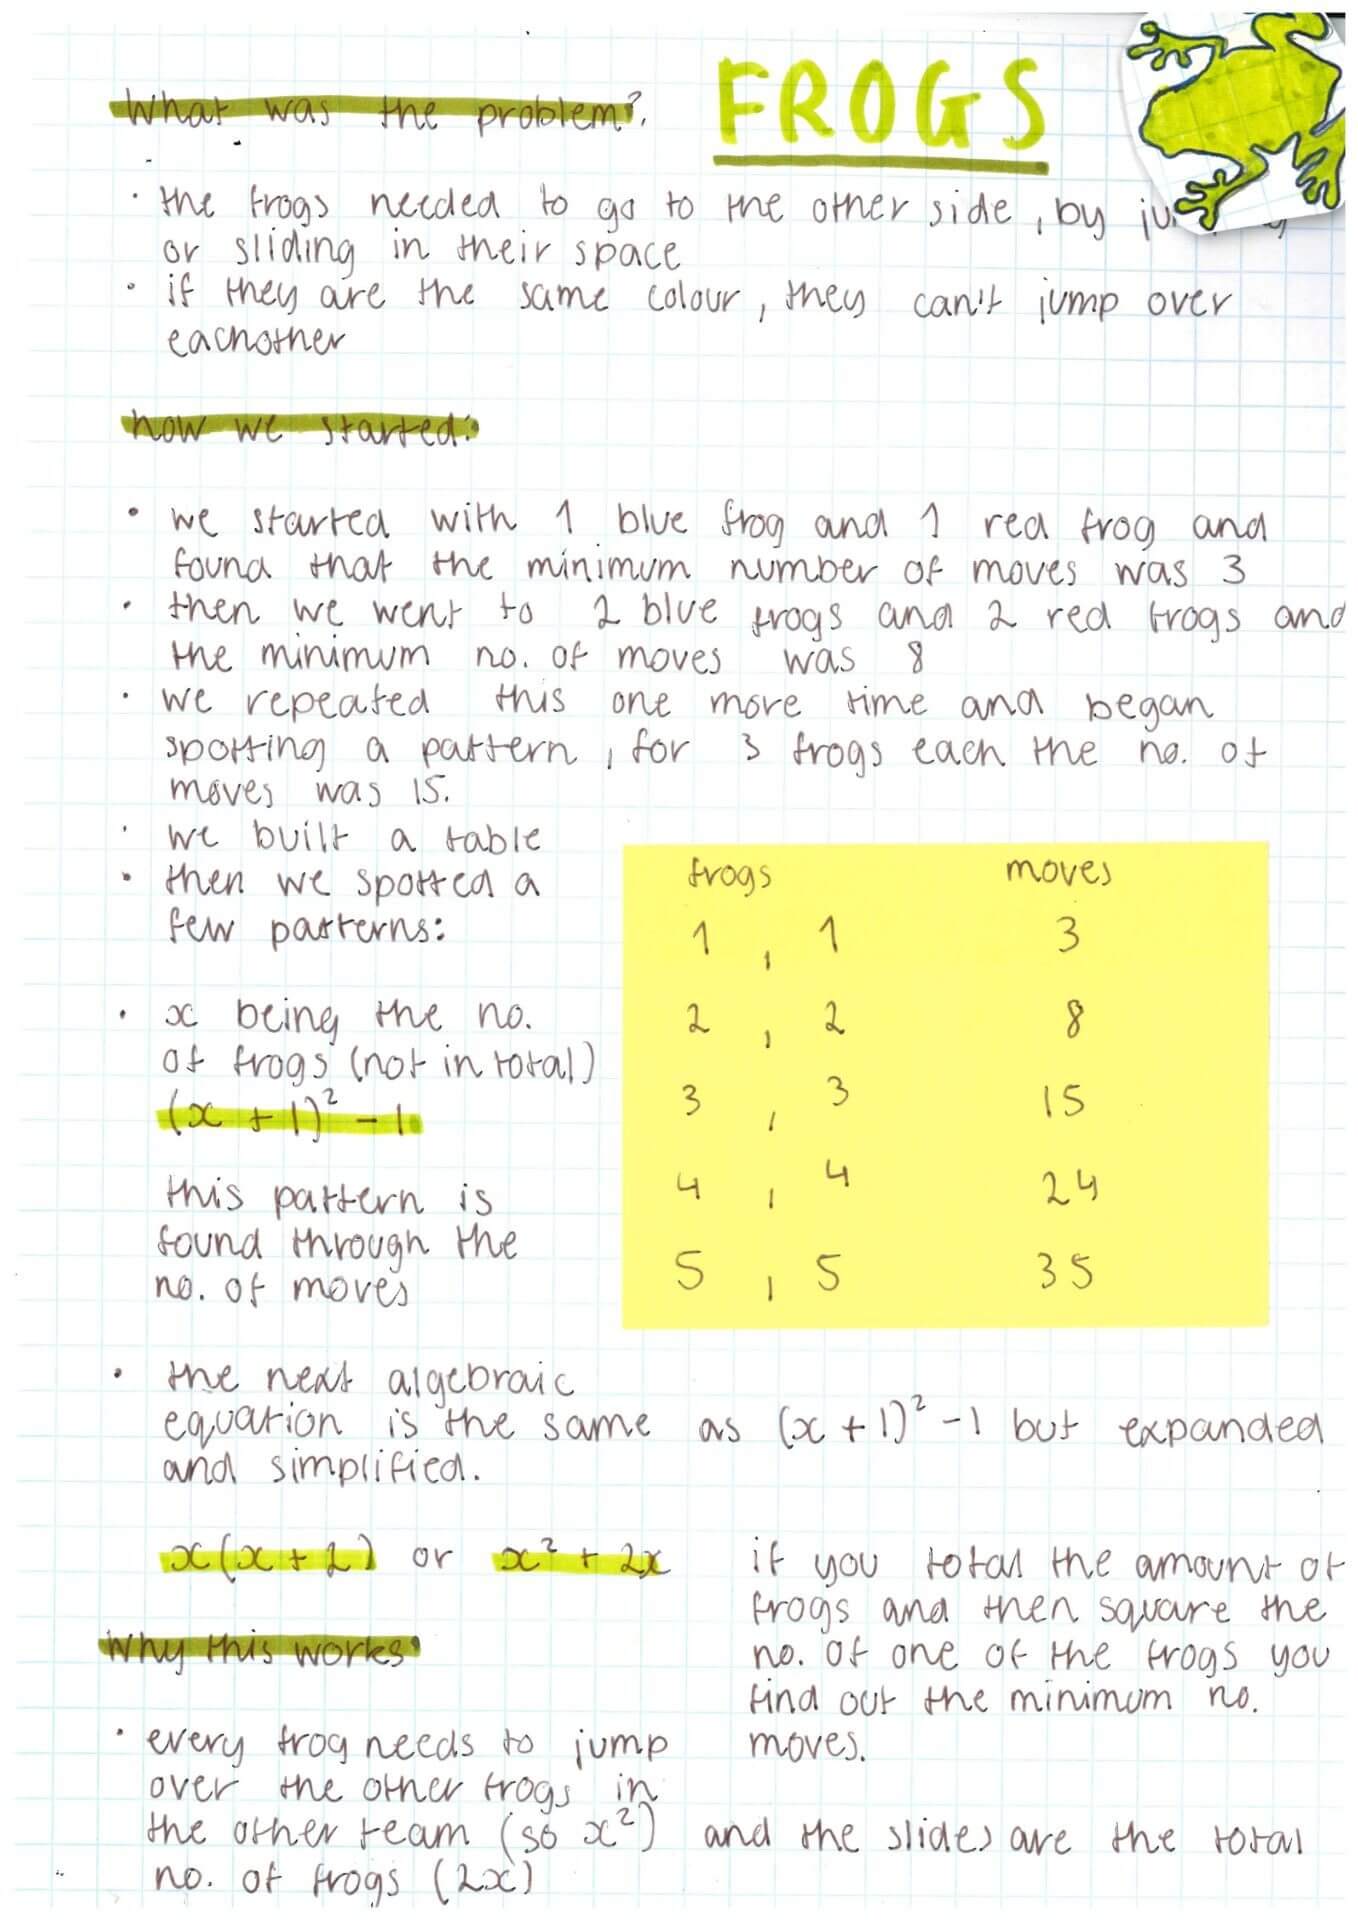 FROGS
What was the problem?
• the frogs needed to go to the other side, by
or sliding in their space
• if they are the same colour, they can't jump over
eachother
how we started:
• we started with 1 blue frog and 1 red frog and
found that the minimum number of moves was 3
• then we went to 2 blue frogs and 2 red frogs and
the minimum no. of moves was 8
• we repeated this one more time and began
spotting a pattern, for 3 frogs each the no. of
moves was 15.
• we built a table
• then we spotted a
few patterns:
• x being the no.
of frogs (not in total)
(x + 1)² - 1
this pattern is
found through the
no. of moves
frogs moves
1 , 1 3
2 , 2 8
3 , 3 15
4 , 4 24
5 , 5 35
• the next algebraic
equation is the same as (x + 1)² - 1 but expanded
and simplified.
x(x + 2) or x² + 2x
if you total the amount of
frogs and then square the
no. of one of the frogs you
find out the minimum no.
moves.
Why this works
• every frog needs to jump
over the other frogs in
the other team (so x²) and the slides are the total
no. of frogs (2x)